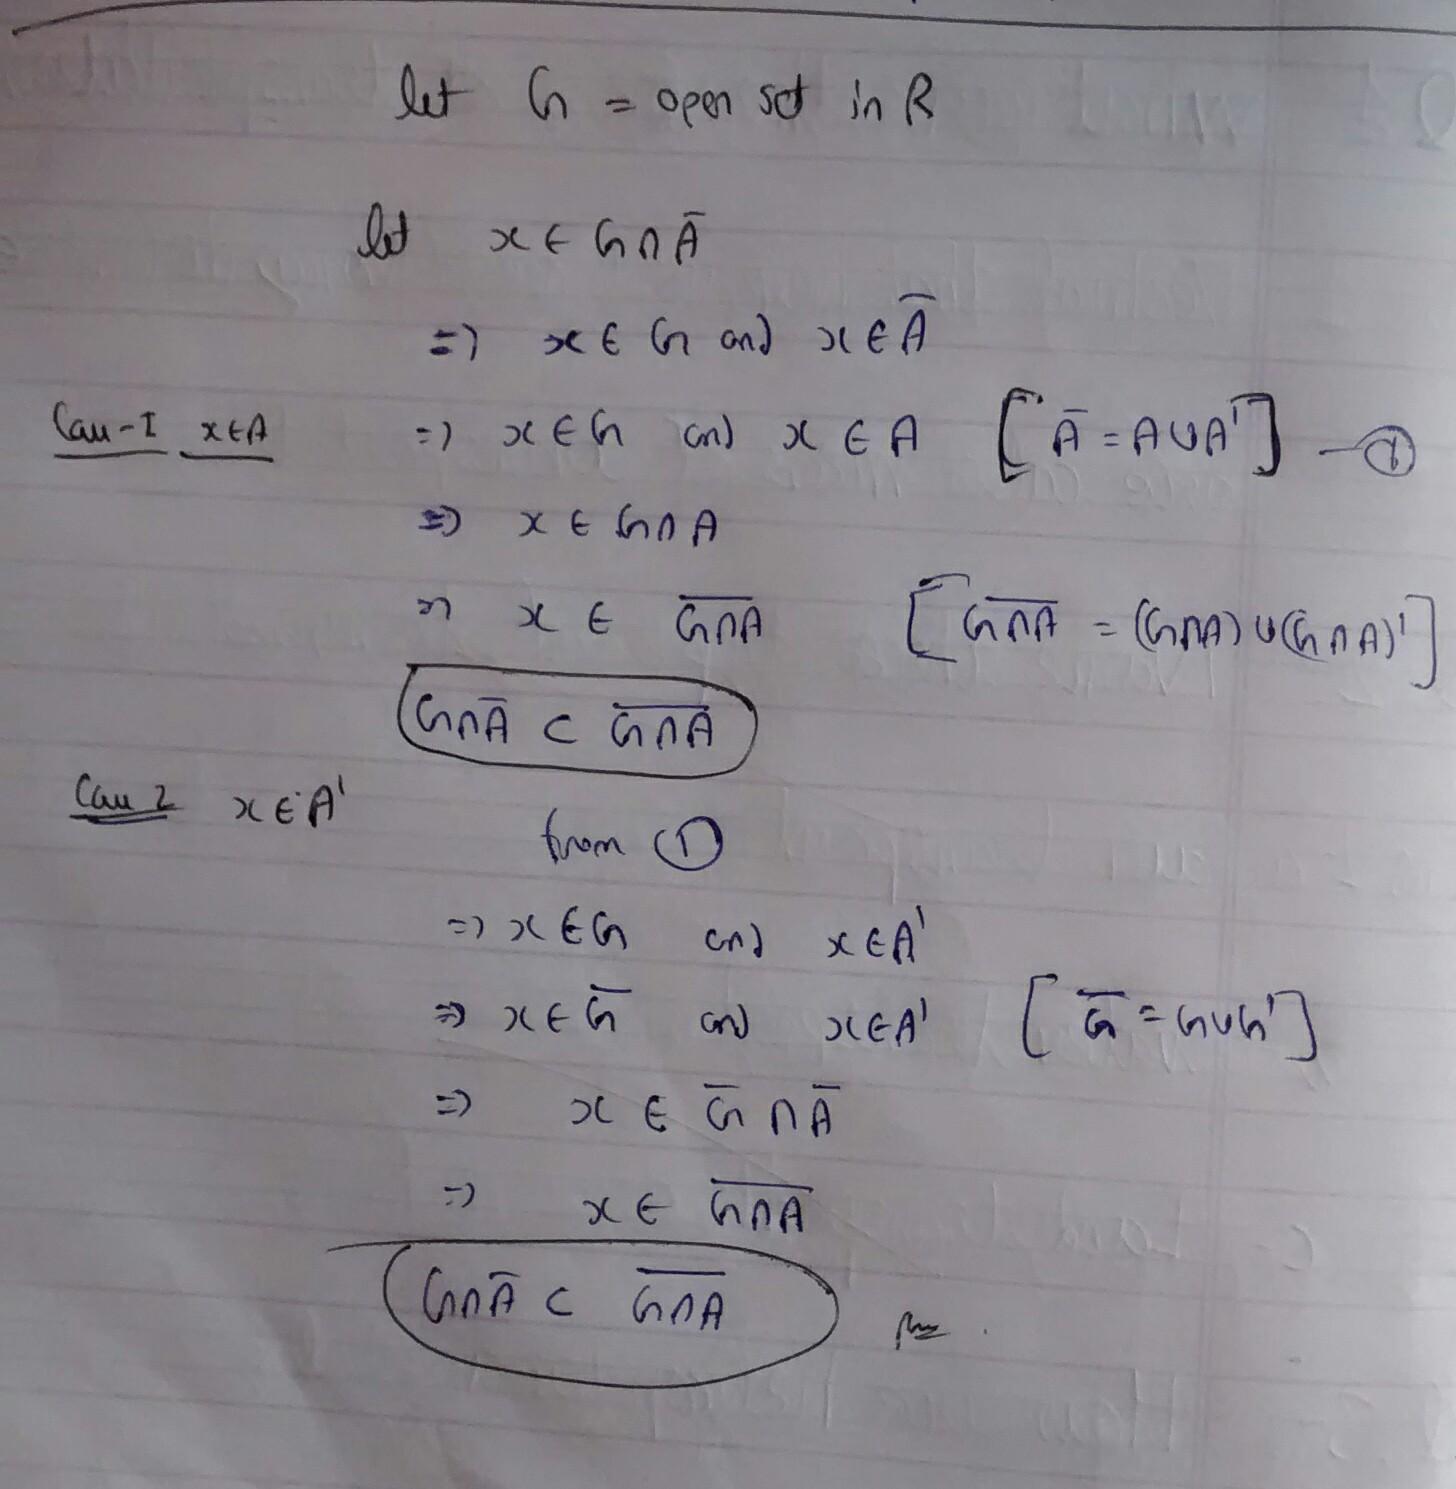 let G = open set in R
let x ∈ G∩Ā
=) x ∈ G and x ∈ Ā
Case-I x∈A =) x ∈ G and x ∈ A [Ā = A∪A'] — ①
=) x ∈ G∩A
=) x ∈ \overline{G∩A} [\overline{G∩A} = (G∩A)∪(G∩A)']
G∩Ā ⊂ \overline{G∩A}
Case 2 x∈A'
from ①
=) x ∈ G and x ∈ A'
=) x ∈ \overline{G} and x ∈ A' [\overline{G} = G∪G']
=) x ∈ \overline{G} ∩ Ā
=) x ∈ \overline{G∩A}
G∩Ā ⊂ \overline{G∩A}